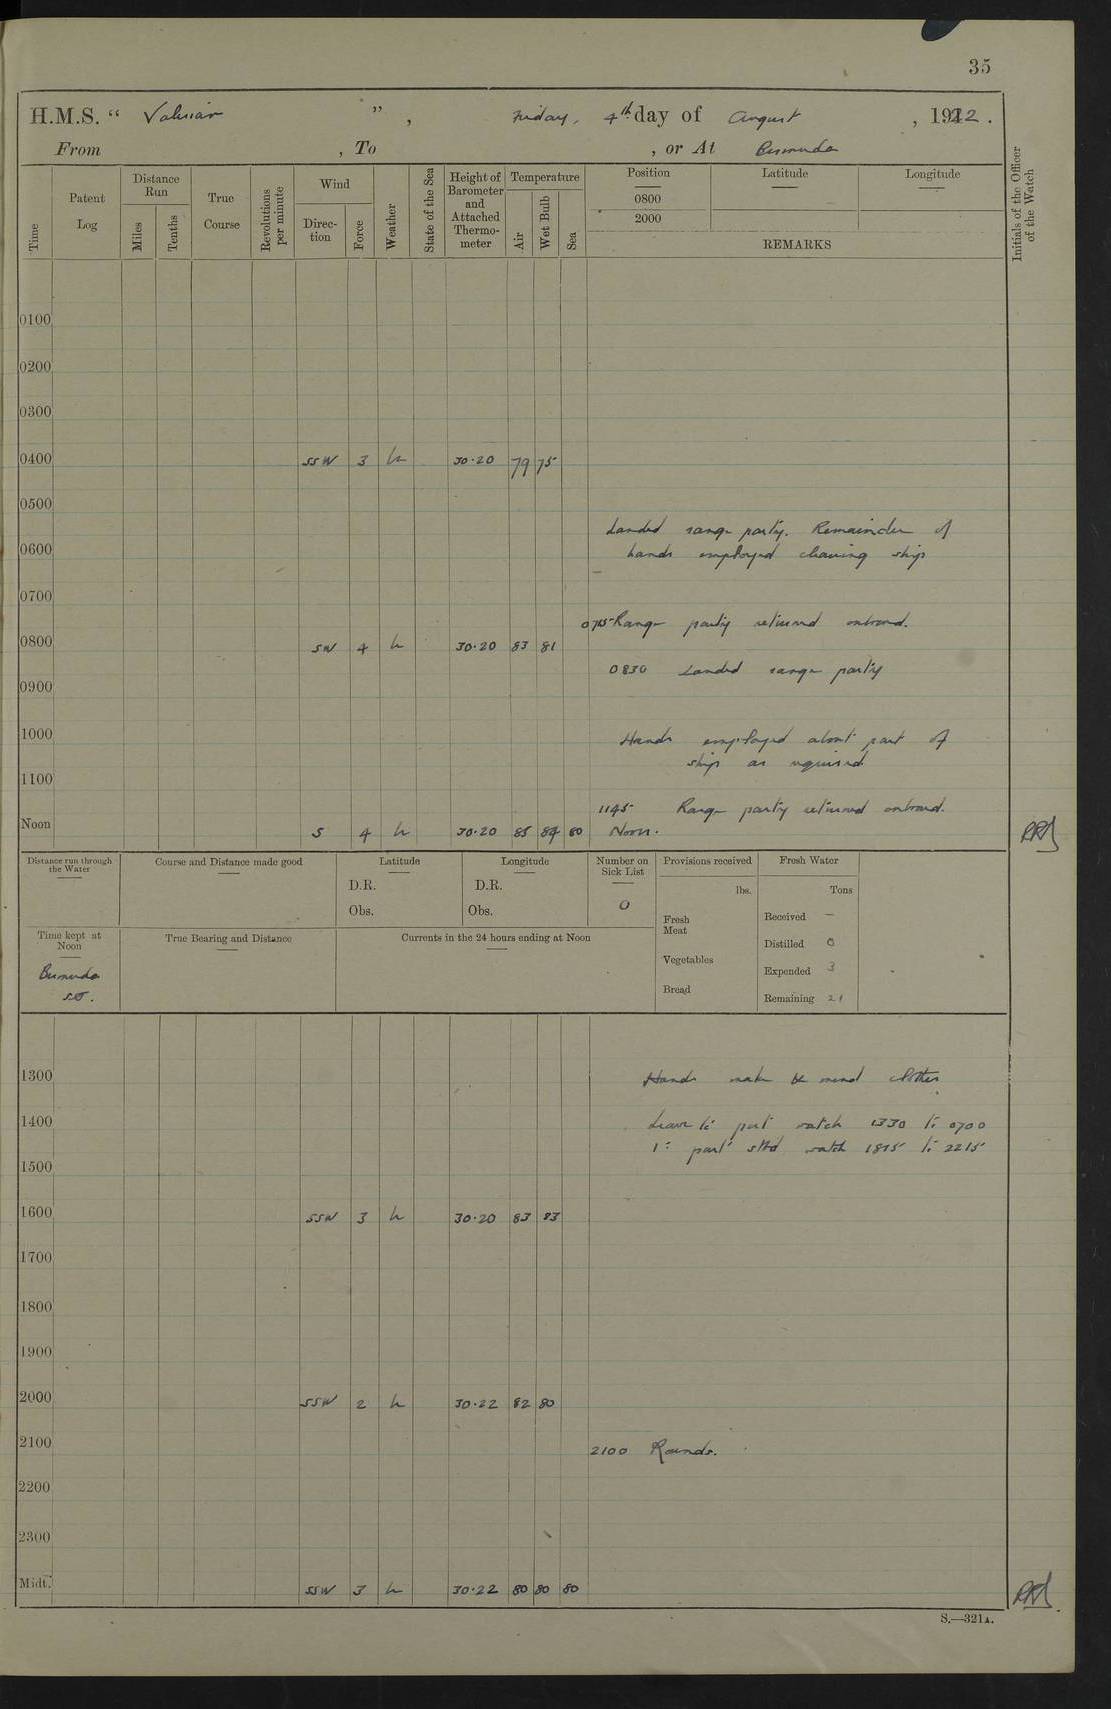 35
H.M.S. “ Valerian ” , Friday, 4th day of August , 1922 .
From , To , or At Bermuda
Time Patent Log Distance Run Miles Tenths True Course Revolutions per minute Wind Direc-tion Force Weather State of the Sea Height of Barometer and Attached Thermo-meter Temperature Air Wet Bulb Sea Position Latitude Longitude Initials of the Officer of the Watch
0800
2000
REMARKS
0100
0200
0300
0400 SSW 3 b 30.20 79 75
0500
Landed range party. Remainder of
0600 hands employed cleaning ship
0700
0715 Range party returned onboard.
0800 SW 4 b 30.20 83 81
0830 Landed range party
0900
1000 Hands employed about part of
ship as required
1100
1145 Range party returned onboard.
Noon S 4 b 30.20 85 84 80 Noon.
Distance run through the Water Course and Distance made good Latitude Longitude Number on Sick List Provisions received Fresh Water
D.R. D.R. lbs. Tons
Obs. Obs. 0 Fresh Meat Received –
Time kept at Noon True Bearing and Distance Currents in the 24 hours ending at Noon Distilled 0
Vegetables Expended 3
Bermuda S.T. Bread Remaining 21
1300 Hands make & mend clothes
1400 Leave to port watch 1330 to 0700
1st part stbd watch 1815 to 2215
1500
1600 SSW 3 b 30.20 83 83
1700
1800
1900
2000 SSW 2 b 30.22 82 80
2100 2100 Rounds.
2200
2300
Midt. SSW 3 b 30.22 80 80 80
S.—321A.